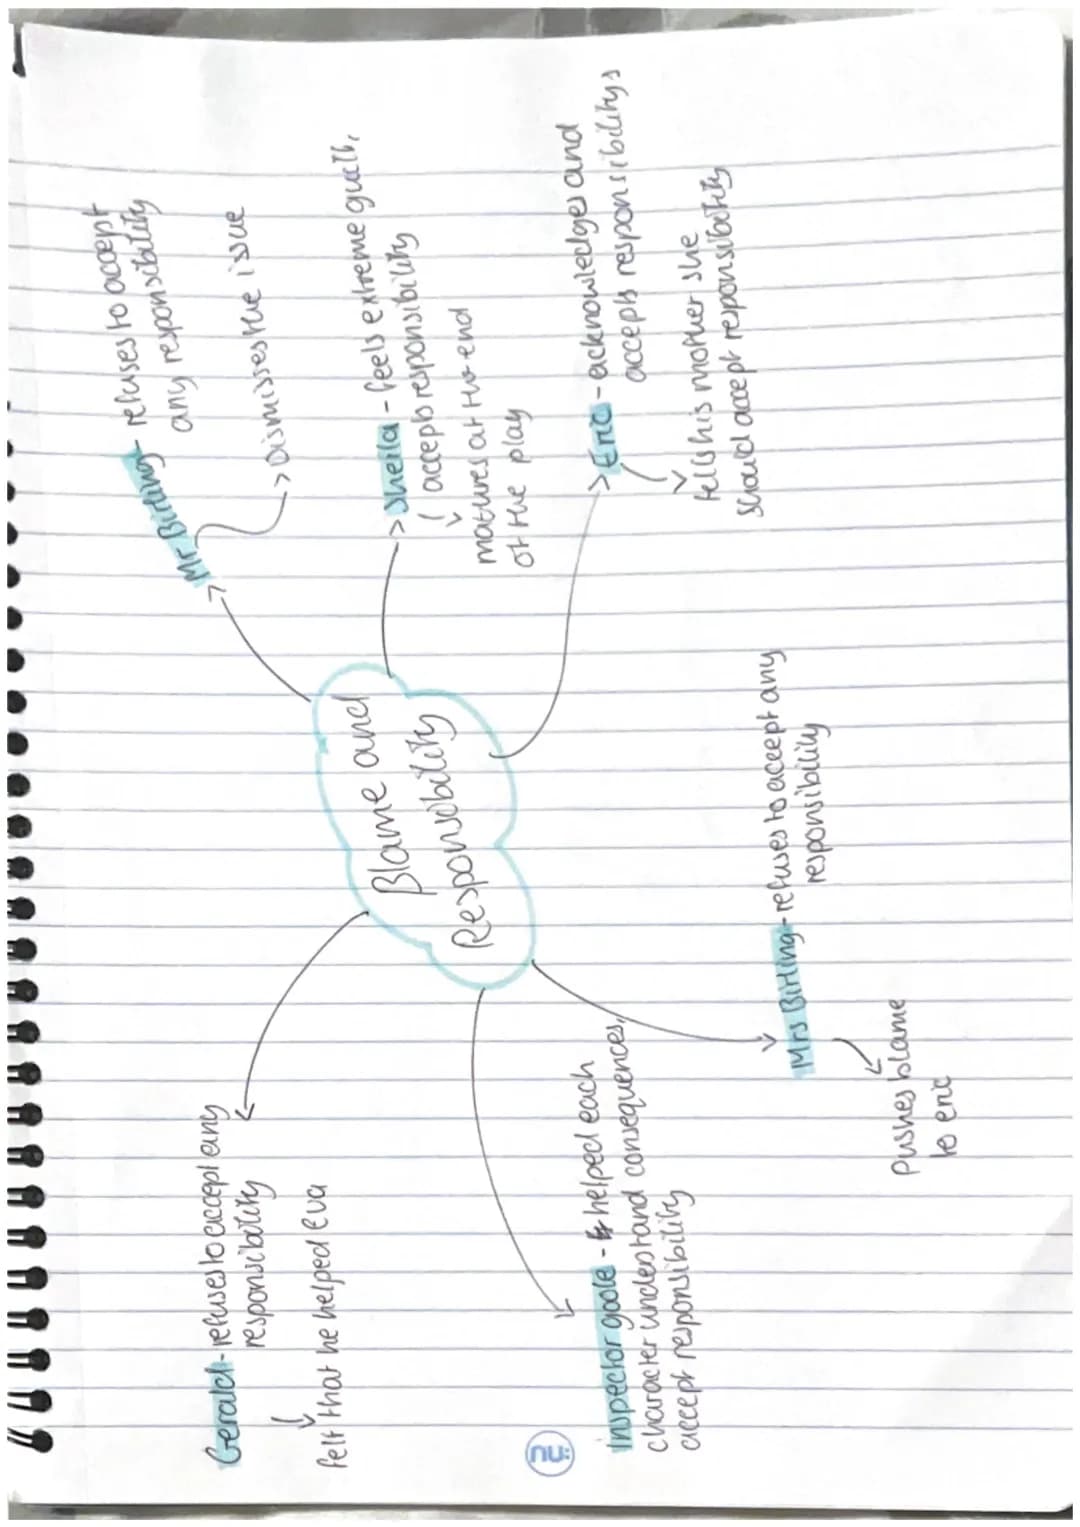 Blame and
Responsibility
Mr Birling - refuses to accept
any responsibility
> Dismisses the issue
> Sheila - feels extreme guilt,
accepts responsibility
matures at the end
of the play
> Eric - acknowledges and
accepts responsibilitys
tells his mother she
should accept responsibility
Mrs Birling - refuses to accept any
responsibility
Pushes blame
to eric
Inspector goole - helped each
character understand consequences,
accept responsibility
Gerald - refuses to accept any
responsibility
felt that he helped eva